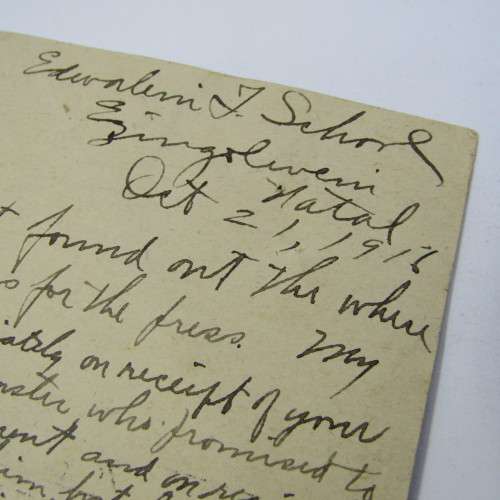 Edwaleni T. School
Ezingolweni
Natal
Oct 21, 1916
found out the where
s for the press. My
iately on receipt of your
ster who promised to
ent and on re
him but